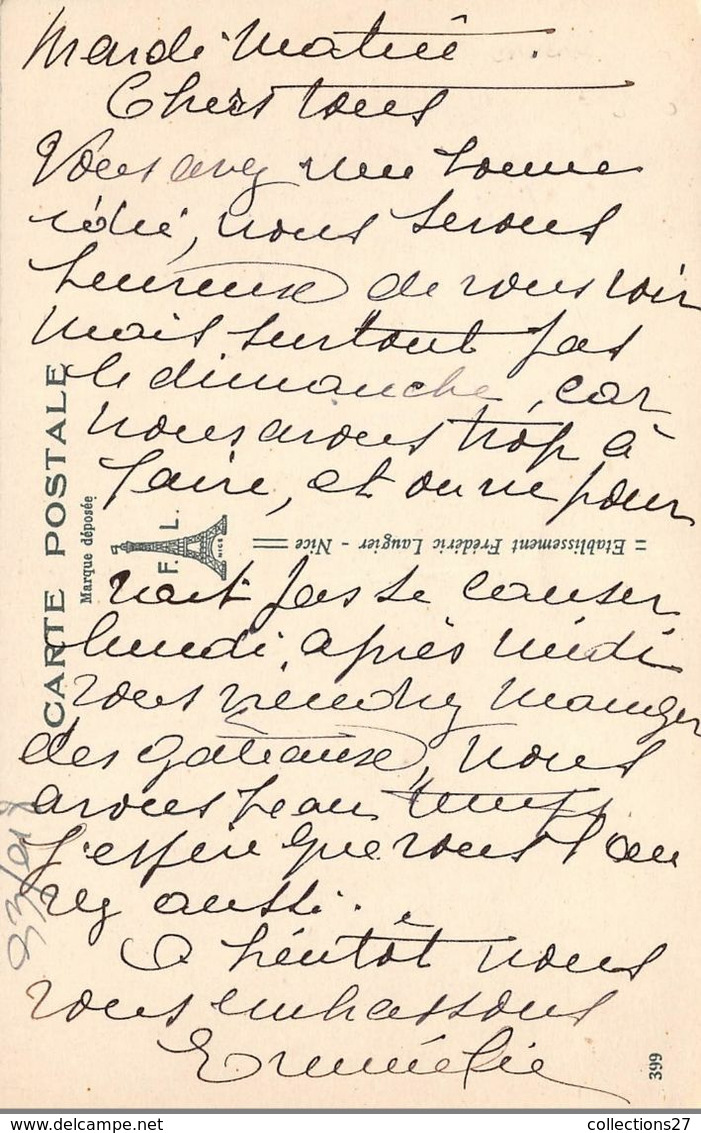 Mardi Matin
Chers tous
Vous avez une bonne
idée, nous serons
heureuse de vous voir
mais surtout pas
le dimanche, car
nous avons trop à
faire, et on ne pour
= Etablissement Frédéric Laugier - Nice =
rait pas se causer
lundi après midi
vous viendrez manger
des gateaux, nous
avons beau temps
j'espère que vous l'au
rez aussi.
A bientôt nous
vous embrassons
CARTE POSTALE
Marque déposée
F. L.
NICE
399
collections27